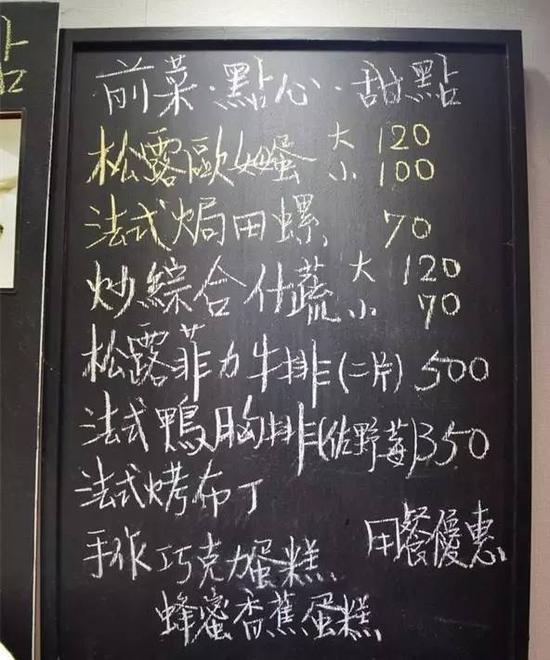 點
前菜·點心·甜點
松露歐姆蛋 大 120
小 100
法式焗田螺 70
炒綜合什蔬 大 120
小 70
松露菲力牛排(二片) 500
法式鴨胸排(佐野莓)350
法式烤布丁
用餐優惠
手作巧克力蛋糕
蜂蜜香蕉蛋糕